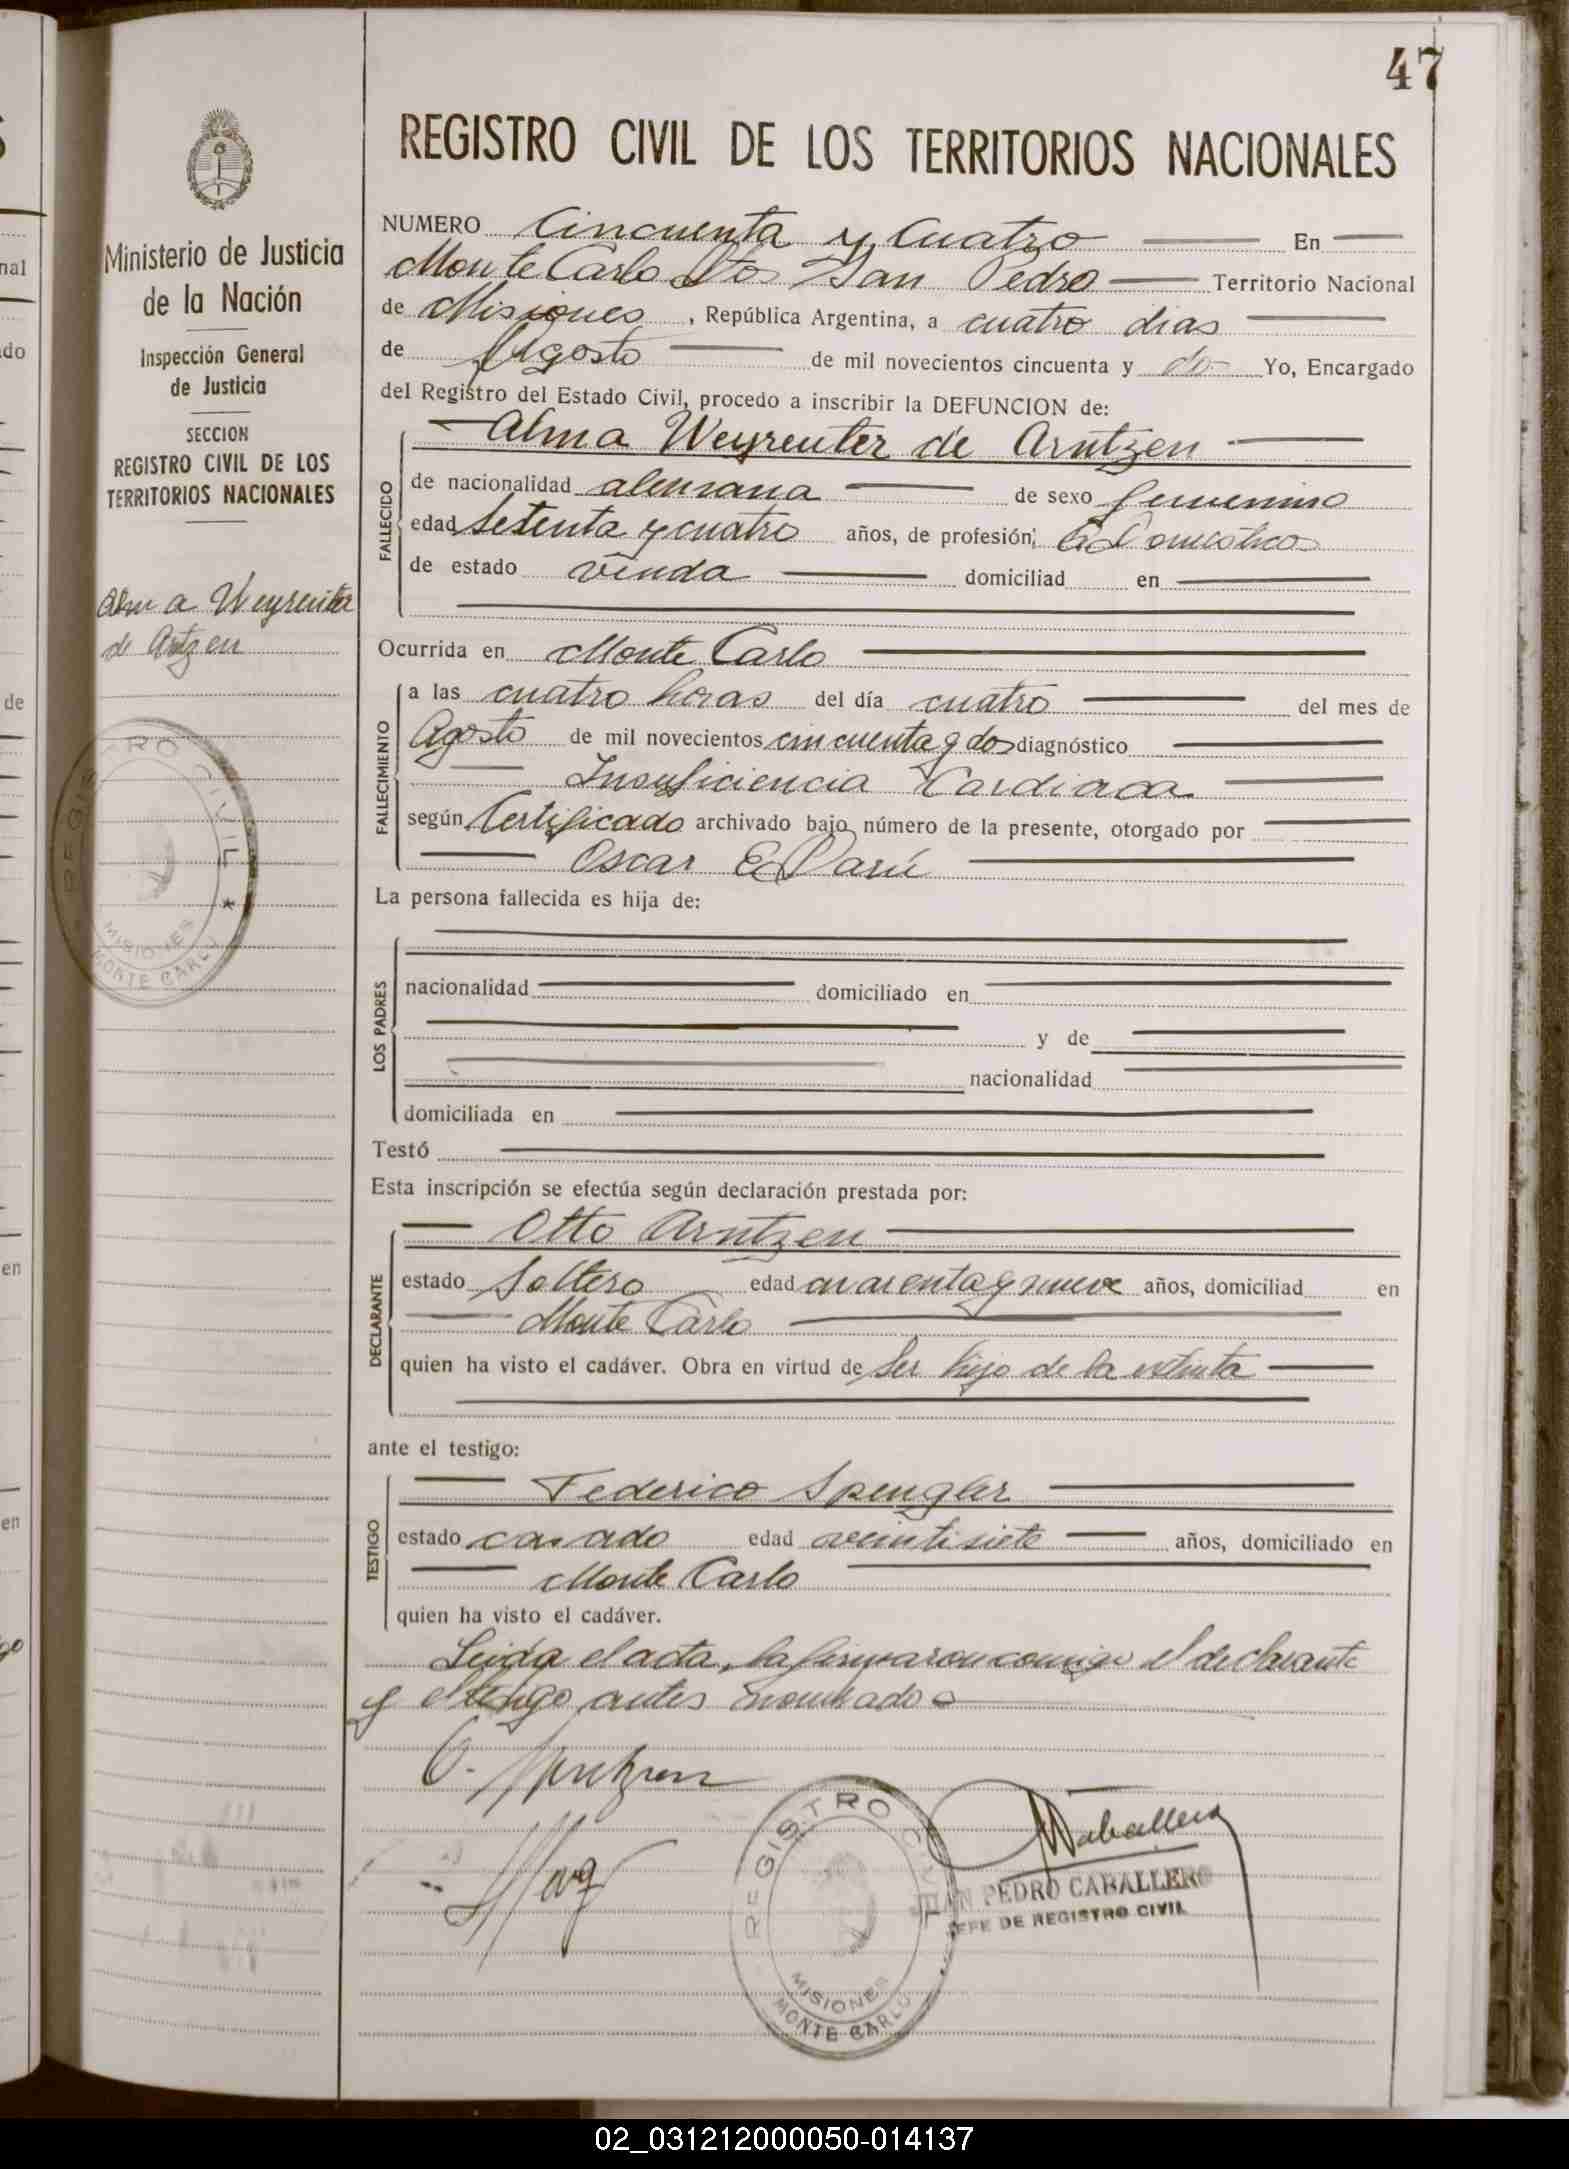 47
REGISTRO CIVIL DE LOS TERRITORIOS NACIONALES
Ministerio de Justicia
de la Nación
Inspección General
de Justicia
SECCION
REGISTRO CIVIL DE LOS
TERRITORIOS NACIONALES
Alma Weyreuter
de Artzen
REGISTRO CIVIL *
MISIONES
MONTE CARLO
NUMERO Cincuenta y Cuatro En
Monte Carlo Dto San Pedro Territorio Nacional
de Misiones, República Argentina, a cuatro dias
de Agosto de mil novecientos cincuenta y dos Yo, Encargado
del Registro del Estado Civil, procedo a inscribir la DEFUNCION de:
Alma Weyreuter de Arntzen
FALLECIDO
de nacionalidad alemana de sexo femenino
edad Setenta y cuatro años, de profesión;
de estado viuda domiciliad en
Ocurrida en Monte Carlo
FALLECIMIENTO
a las cuatro horas del día cuatro del mes de
Agosto de mil novecientos cincuenta y dos diagnóstico
Insuficiencia Cardiaca
según Certificado archivado bajo número de la presente, otorgado por
Oscar E
La persona fallecida es hija de:
LOS PADRES
nacionalidad domiciliado en
y de
nacionalidad
domiciliada en
Testó
Esta inscripción se efectúa según declaración prestada por:
Otto Arntzen
DECLARANTE
estado Soltero edad cuarenta y nueve años, domiciliad en
Monte Carlo
quien ha visto el cadáver. Obra en virtud de ser hijo de la extinta
ante el testigo:
Federico Spengler
TESTIGO
estado casado edad veintisiete años, domiciliado en
Monte Carlo
quien ha visto el cadáver.
Leida el acta, la firmaron conmigo el declarante
y el testigo antes nombrado
O. Arntzen
Caballero
REGISTRO CIVIL
MISIONES
MONTE CARLO
JUAN PEDRO CABALLERO
JEFE DE REGISTRO CIVIL
02_031212000050-014137